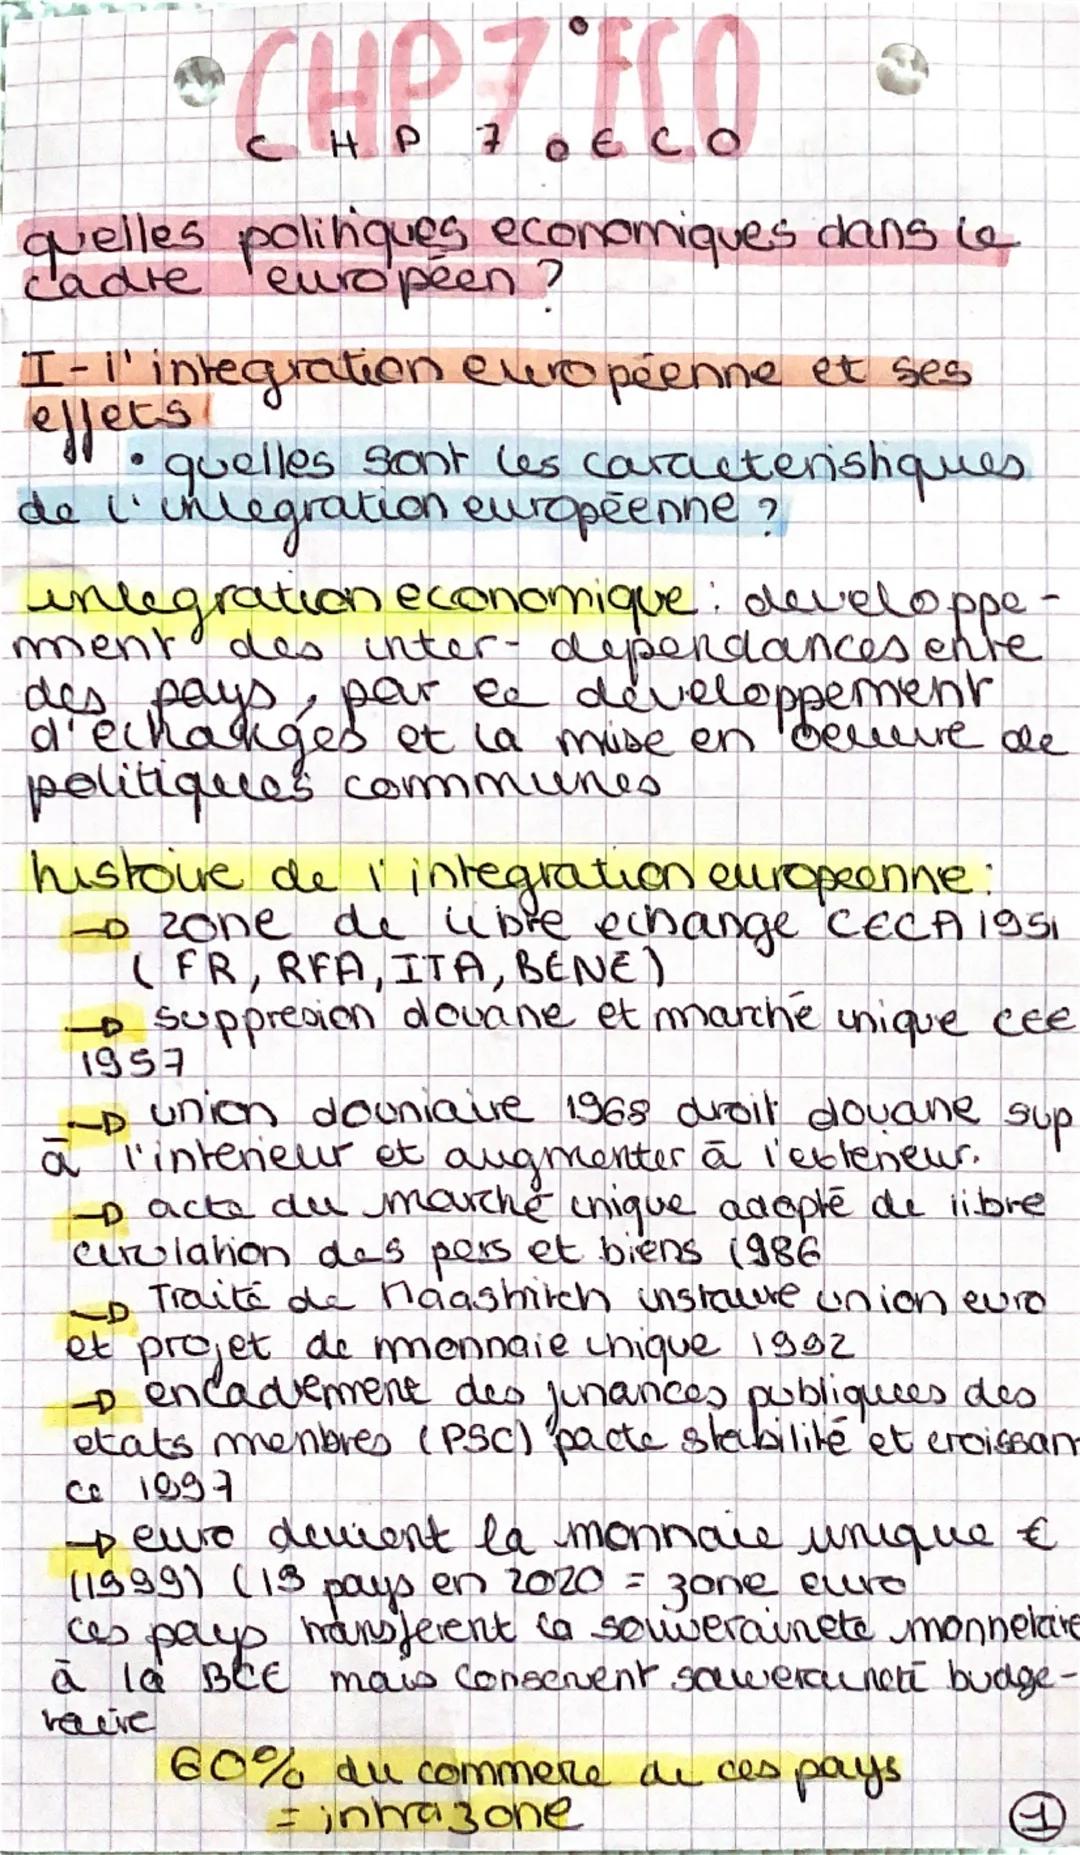 CHP7 ECO
CHP 7 ECO
quelles politiques economiques dans le
cadre européen ?
I-l'integration européenne et ses
effets
• quelles sont les caracteristiques
de l'integration européenne ?
integration economique : developpe-
ment des inter-dependances entre
des pays, par le développement
d'échanges et la mise en oeuvre de
politiques communes
histoire de l'integration europeenne :
→ zone de libre echange CECA 1951
(FR, RFA, ITA, BENE)
→ suppresion douane et marché unique CEE
1957
→ union douniaire 1968 droit douane sup
à l'interieur et augmenter à l'exterieur.
→ acte du marché unique adopté de libre
circulation des pers et biens 1986
→ Traité de Maastrich instaure union euro
et projet de monnaie unique 1992
→ encadrement des finances publiques des
etats membres (PSC) pacte stabilité et croissan-
ce 1997
→ euro devient la monnaie unique €
(1999) (19 pays en 2020 = zone euro
ces pays transferent la souveraineté monnetaire
à la BCE mais conservent souveraineté budge-
taire
60% du commerce de ces pays
= intrazone
1